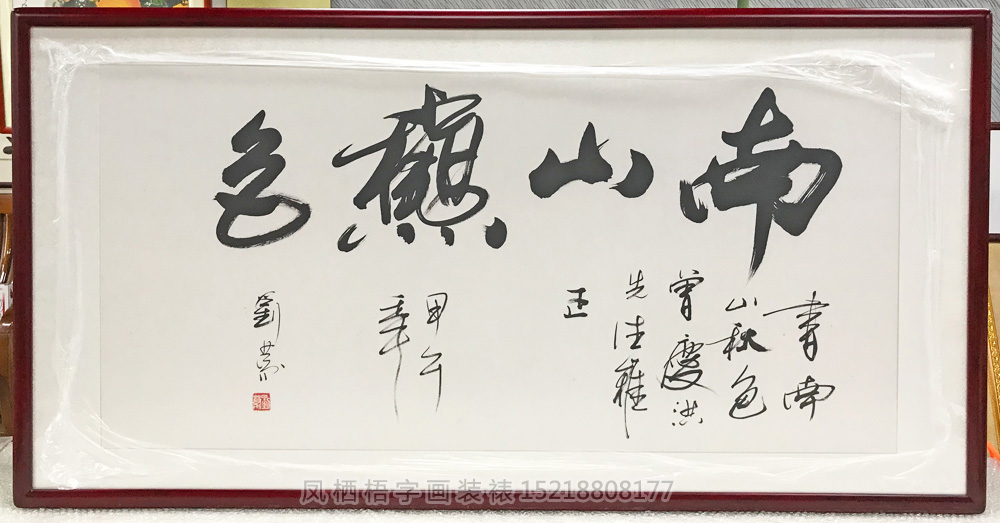 南山龝色
書南
山秋色
曾慶洪
先生雅
正
甲午
季
劉
凤栖梧字画装裱15218808177